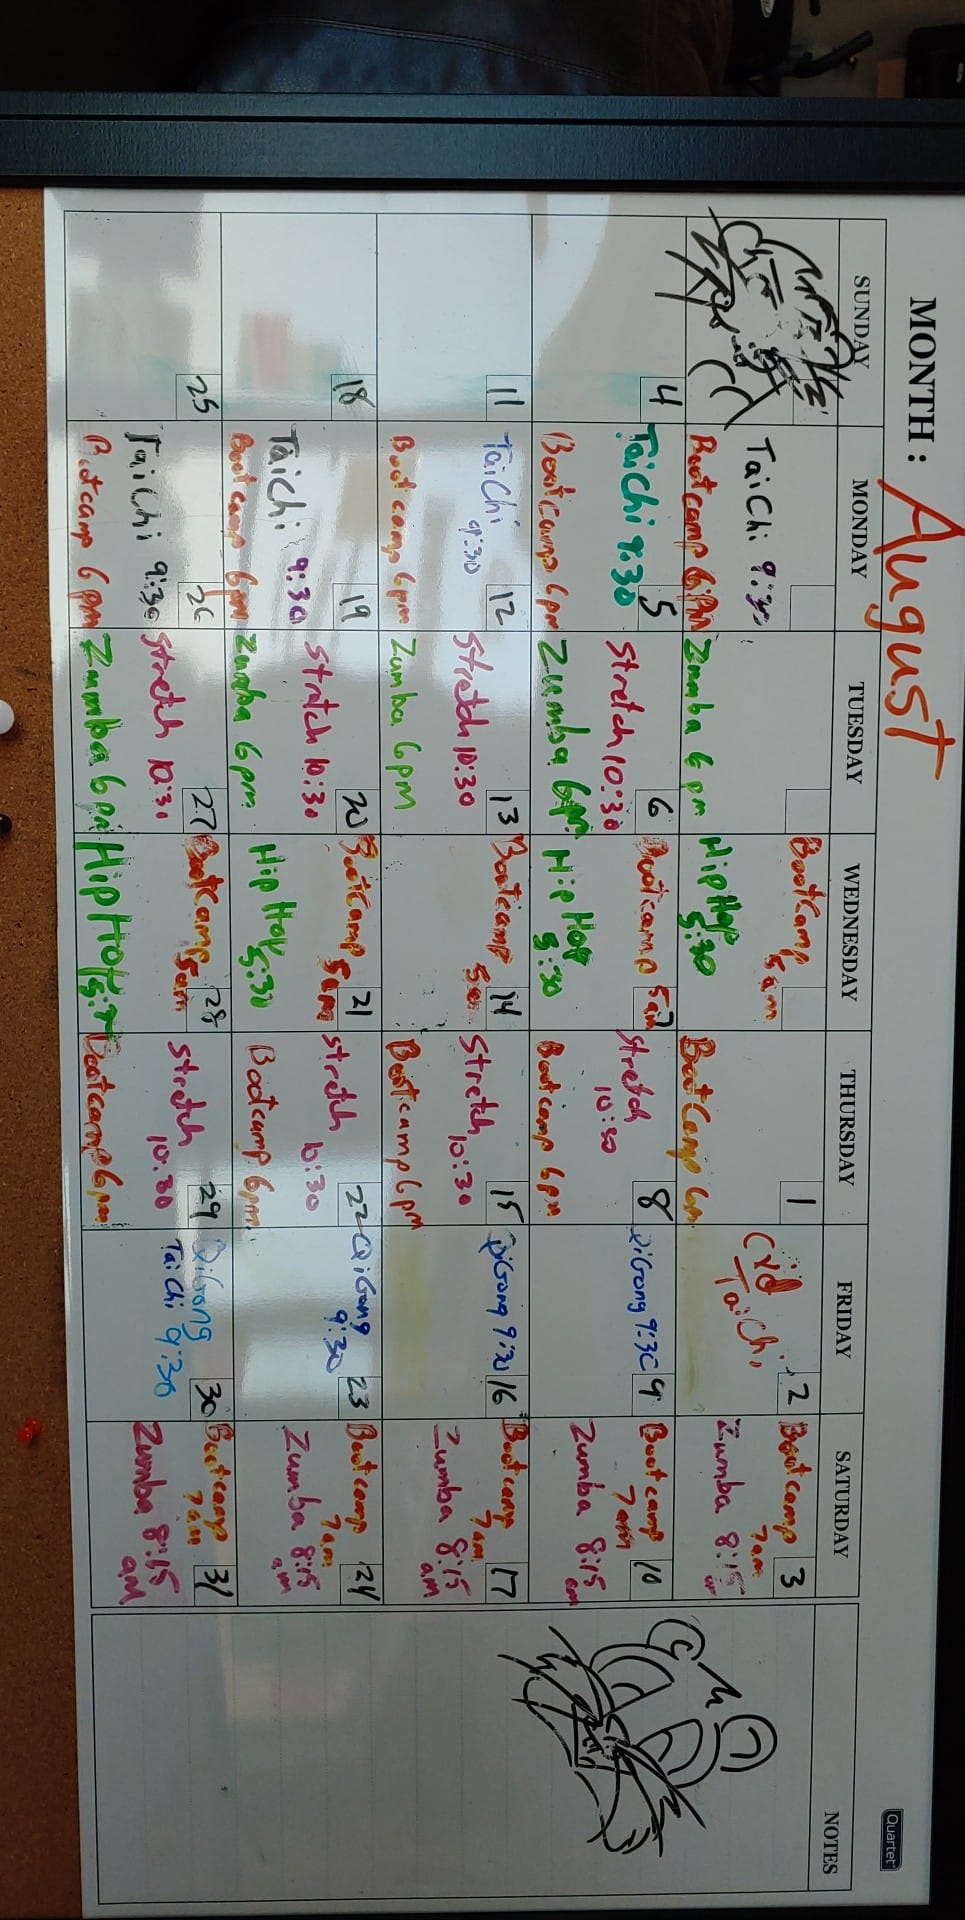 MONTH: August
Quartet
SUNDAY MONDAY TUESDAY WEDNESDAY THURSDAY FRIDAY SATURDAY NOTES
Tai Chi
Bootcamp 6pm
Zumba 6pm
Bootcamp
5am
Hip Hop
5:30
1
BootCamp
2
Tai Chi
3
Bootcamp
7am
Zumba 8:15
4
5
Tai Chi 9:30
Bootcamp 6pm
6
Stretch 10:30
Zumba 6pm
7
Bootcamp 5am
Hip Hop
5:30
8
Stretch
10:30
Bootcamp 6pm
9
QiGong 9:30
10
Bootcamp
7am
Zumba 8:15
am
11
12
Tai Chi
9:30
Bootcamp 6pm
13
Stretch 10:30
Zumba 6pm
14
Bootcamp
15
Stretch
10:30
Bootcamp 6pm
16
QiGong 9:30
17
Bootcamp
7am
Zumba 8:15
am
18
19
Tai Chi 9:30
Bootcamp 6pm
20
Stretch 10:30
Zumba 6pm
21
Bootcamp
5am
Hip Hop
5:30
22
Stretch
10:30
Bootcamp 6pm
23
QiGong
9:30
24
Bootcamp
7am
Zumba 8:15
am
25
26
Tai Chi 9:30
Bootcamp 6pm
27
Stretch 10:30
Zumba 6pm
28
BootCamp
5am
Hip Hop
29
Stretch
10:30
Bootcamp 6pm
30
QiGong
Tai Chi 9:30
31
Bootcamp
7am
Zumba 8:15
am